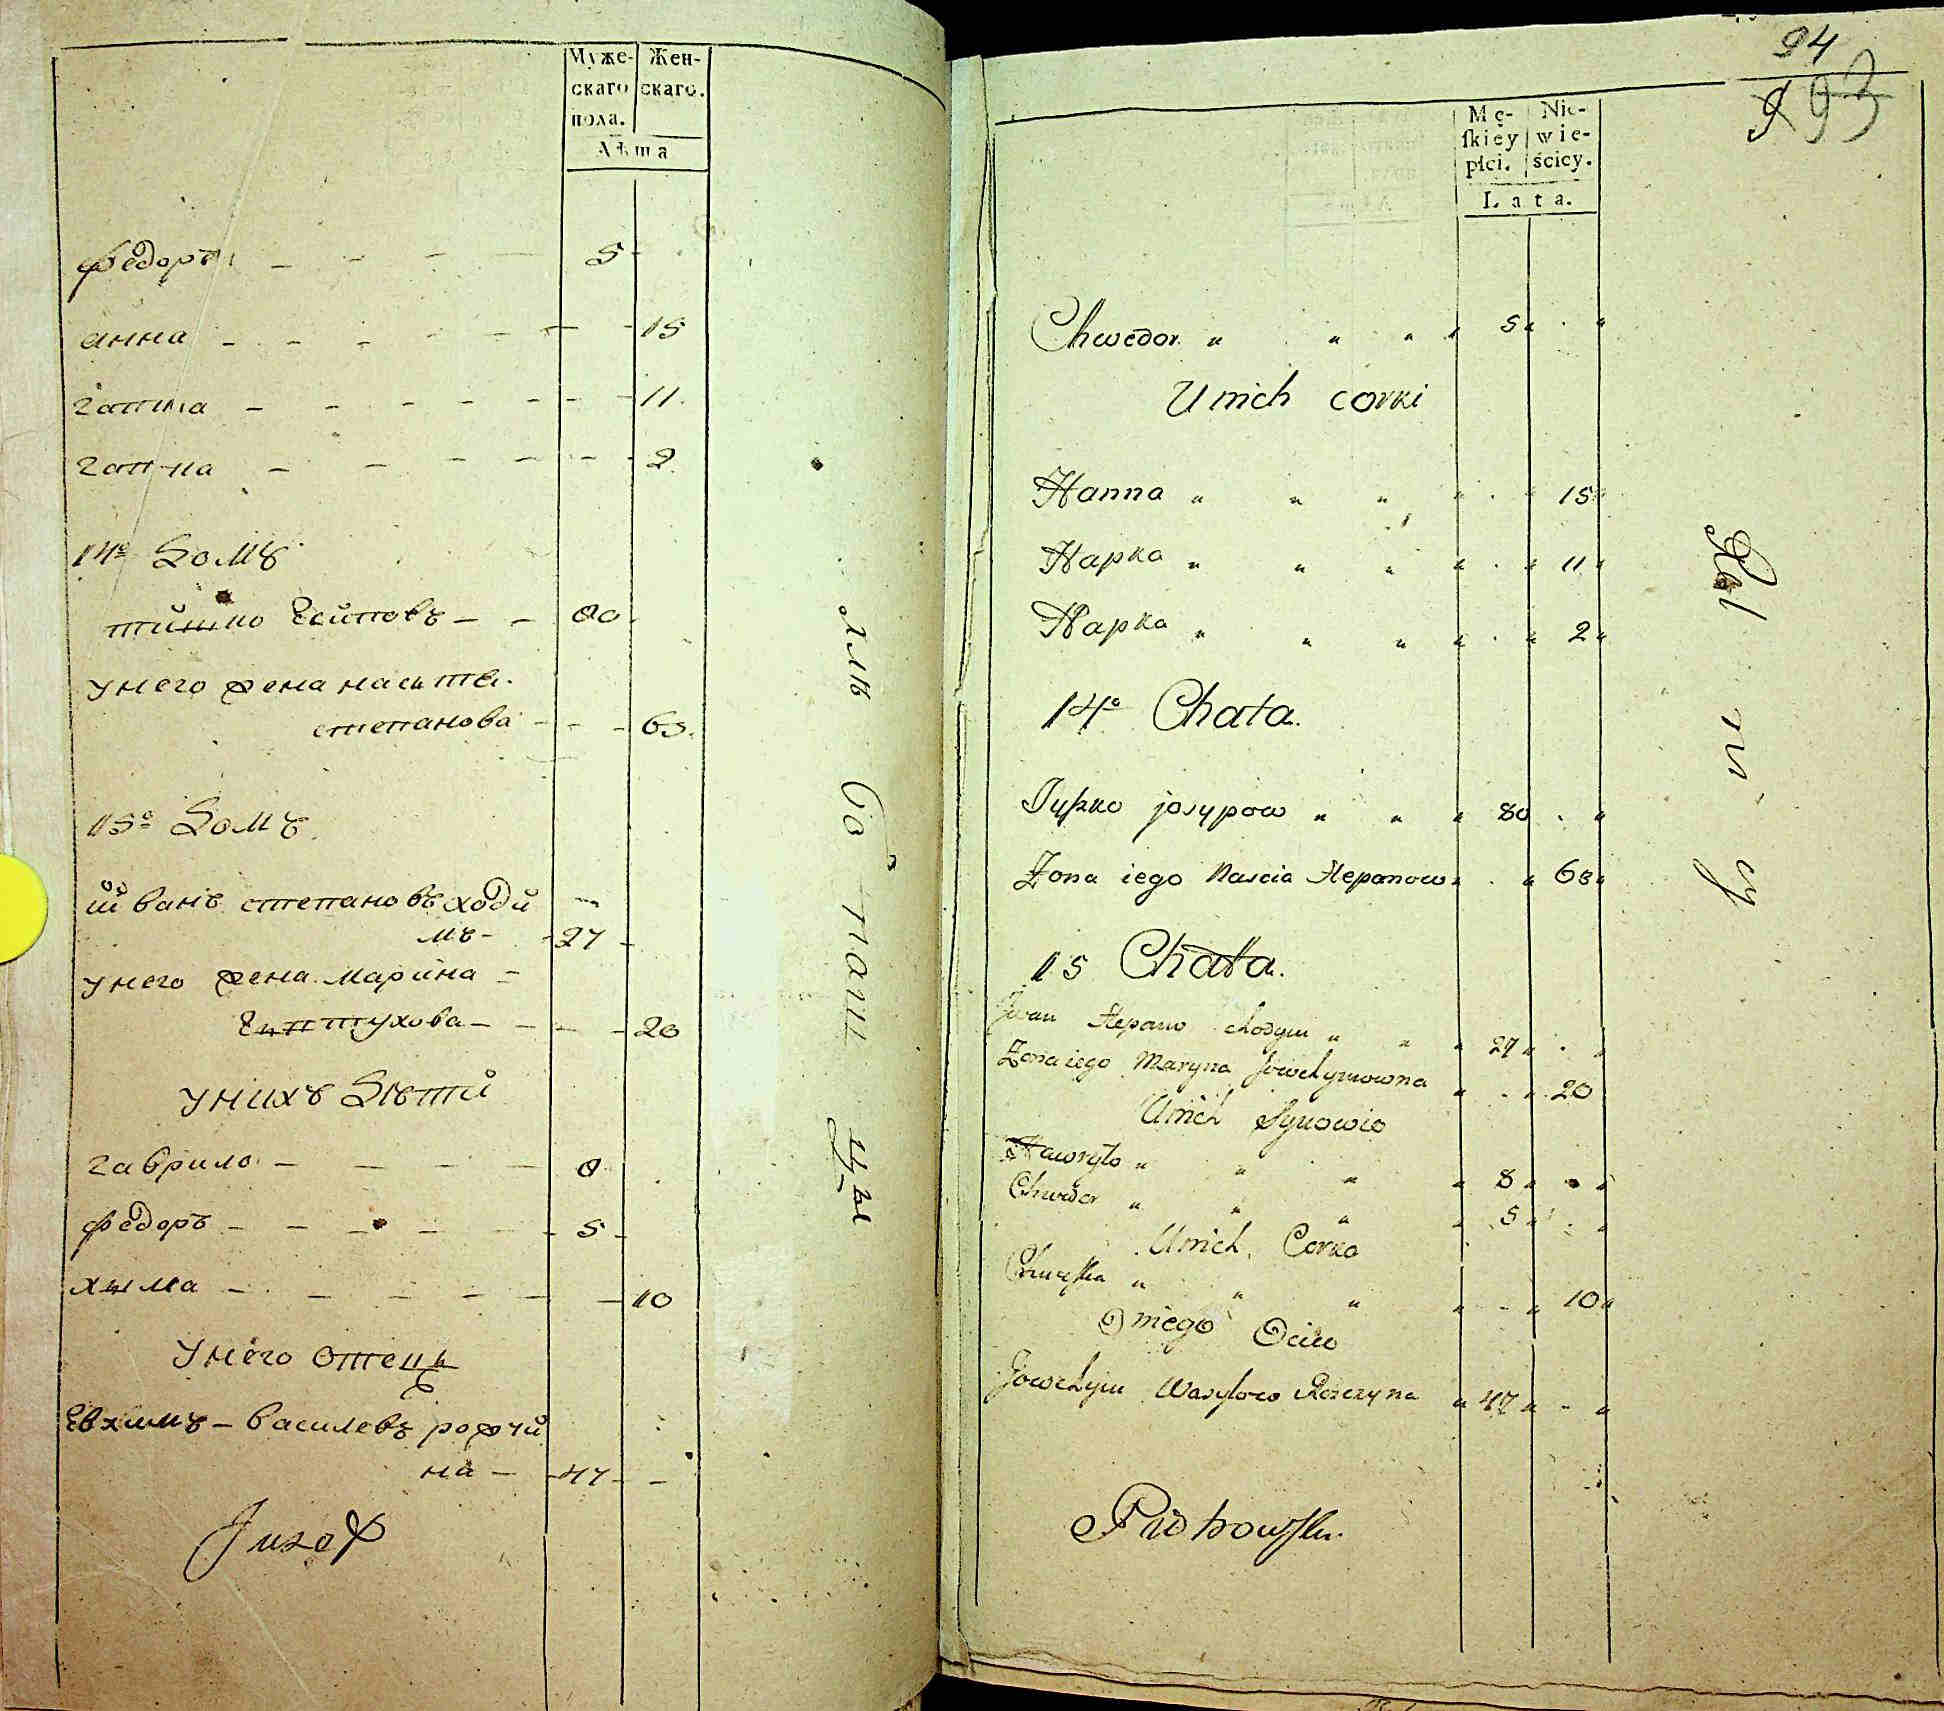 Муже- Жен-
скаго скаго.
пола.
Лѣта
федоръ 5
анна 15
гапка 11
гапка 2
14º домъ
тишко Есиповъ 80
унего жена насътя
степанова 63
15º домъ
иванъ степановъ ходи
мъ 27
унего жена марина
Евтухова 20
унихъ дѣти
гаврило 8
федоръ 5
хыма 10
унего отецъ
Евхимъ василевъ рожчи
на 47
Juzef
94
93
Mę- Nie-
ſkiey wie-
płci. ścicy.
Lata.
Chwedor 5
U nich corki
Hanna 15
Hapka 11
Hapka 2
14º Chata.
Tyszko josypow 80
Żona iego Nascia Stepanow 63
15 Chata.
Jwan Stepano Chodym 27
Żona iego Maryna Jowchymowna 20
U nich Synowie
Hawryło 8
Chwedor 5
U nich Corka
10
O niego Ociec
Jowchym Wasylow Rożczyna 47